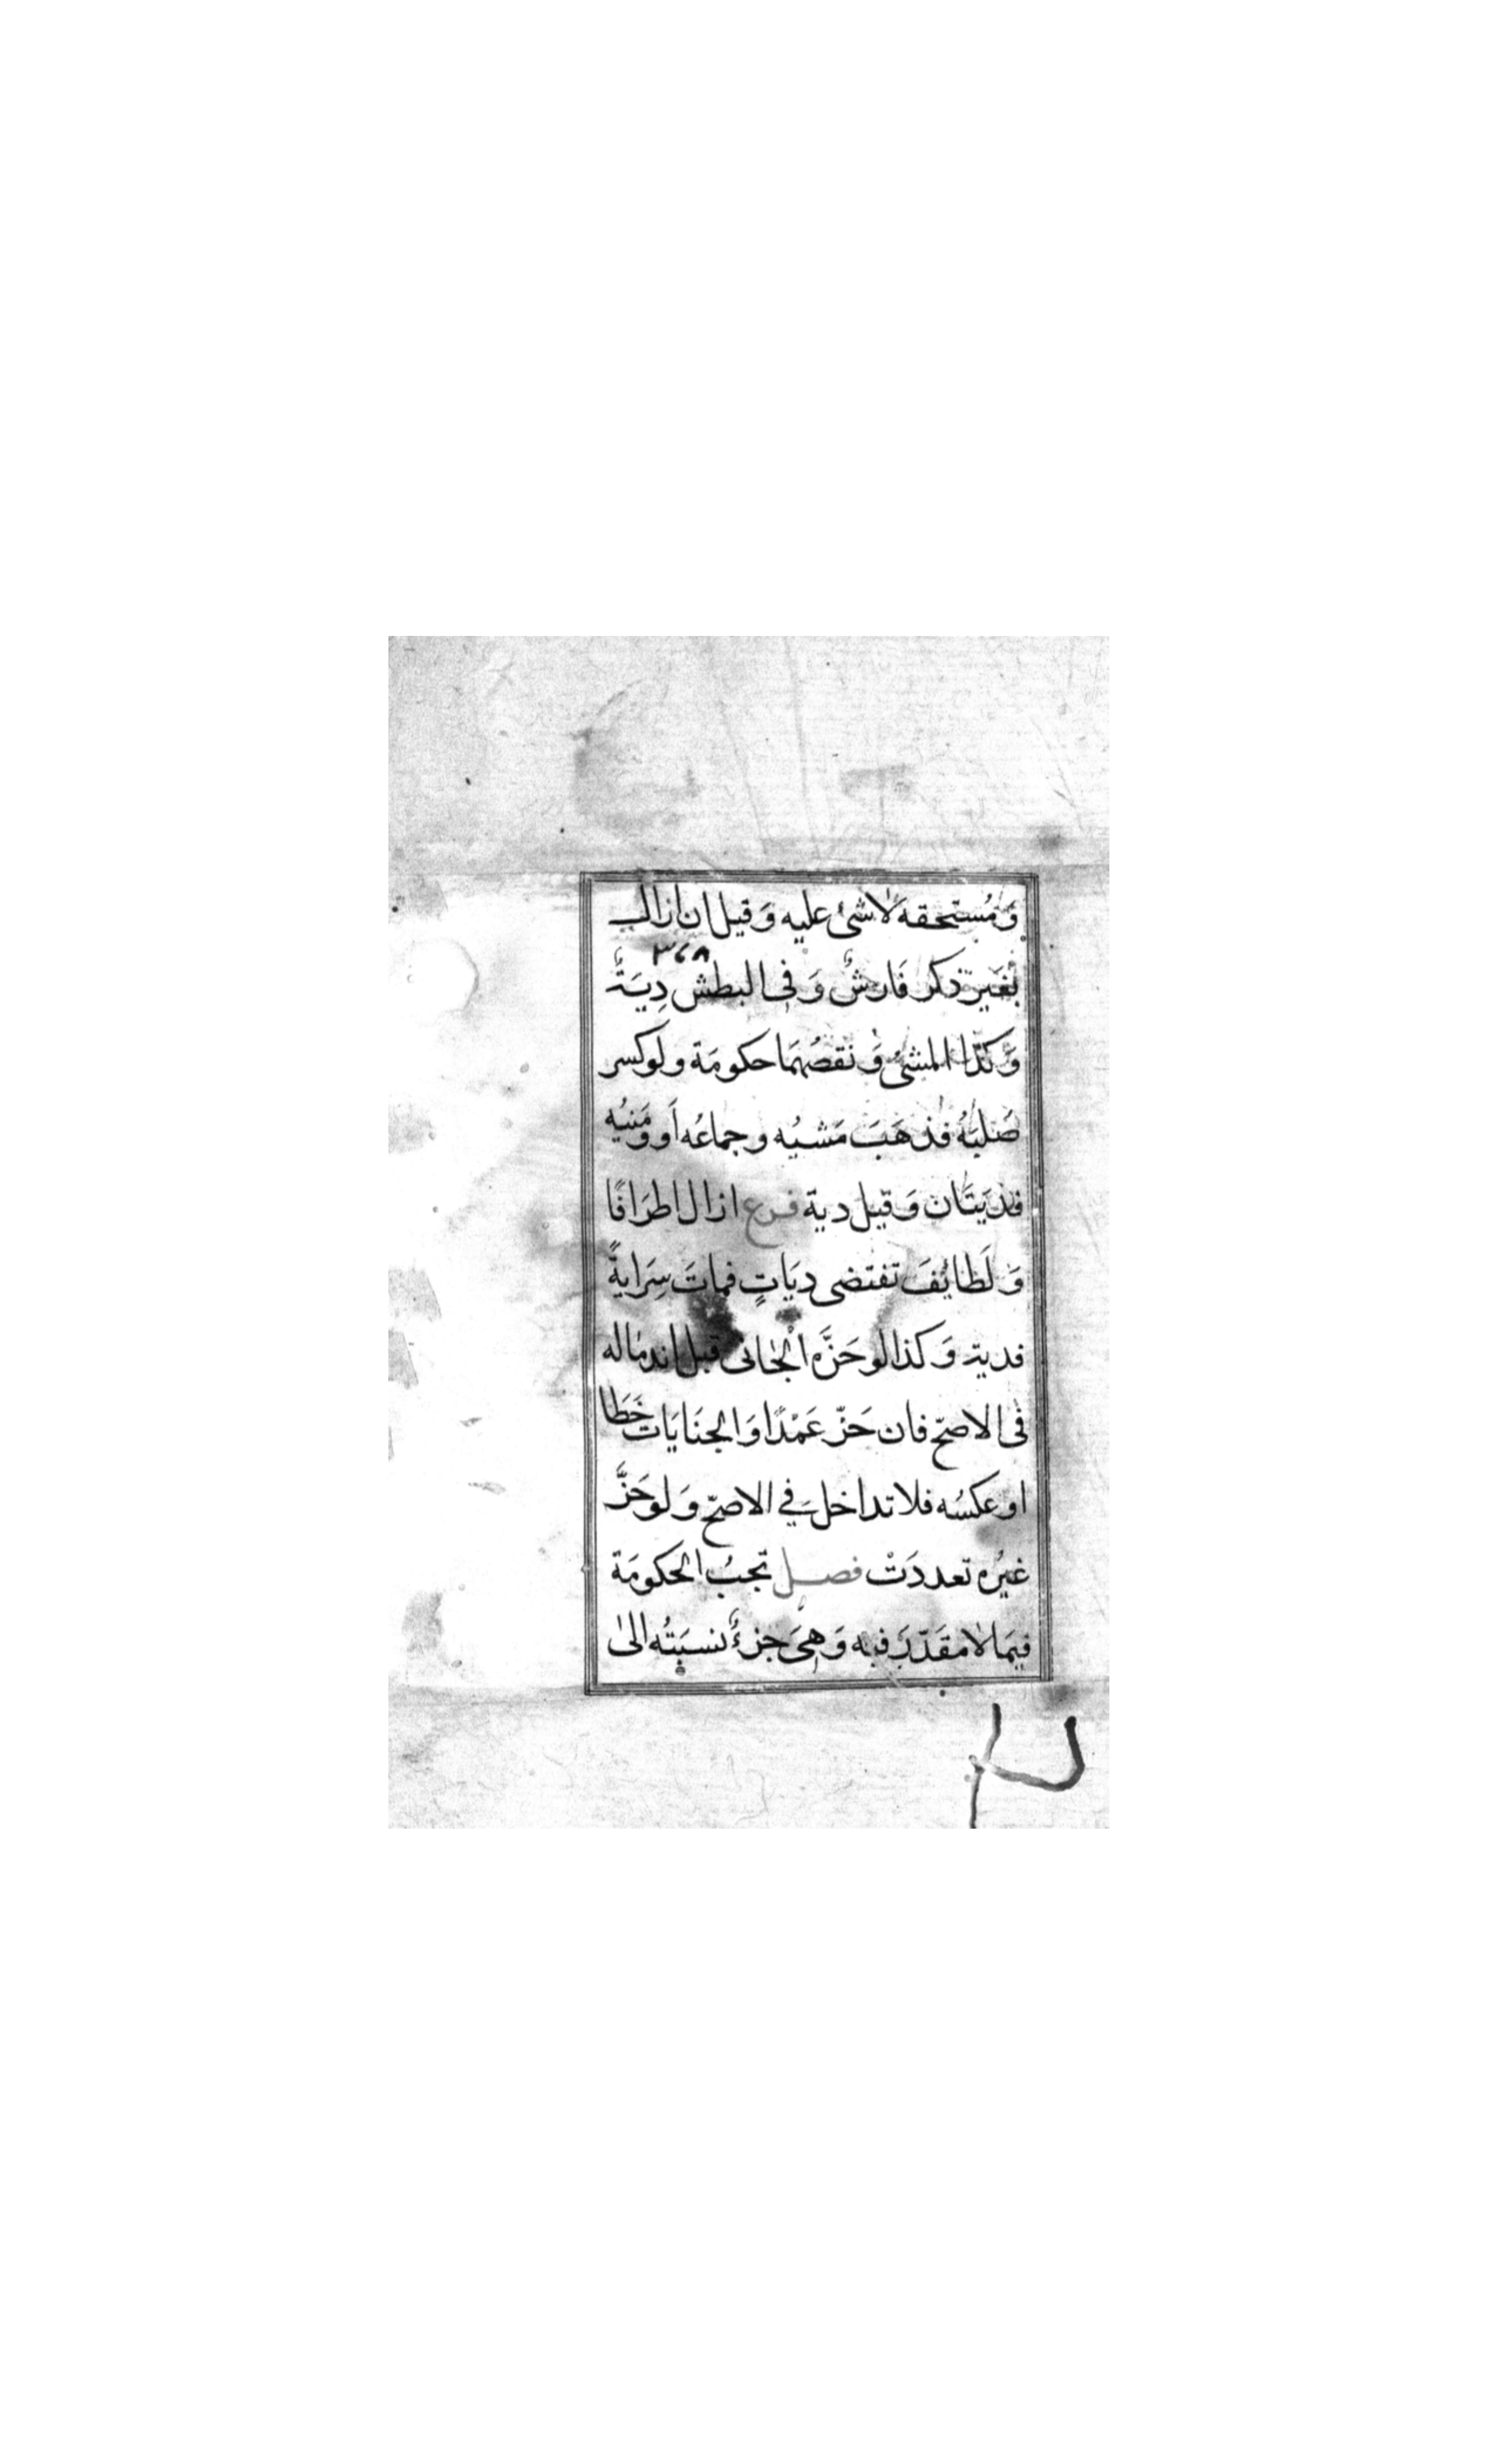 وَمُستحقه لاشئ عليه وَقيل ان ازال
٣٦٨
بغَير ذكر فَارشٌ وَفى البطش دِيَةٌ
وَكذا المشئ وَنقصُهمَا حكومَة ولوكسر
صَلبَهُ فذهَبَ مَشيُه وجماعُه اَو وَمَنيُه
فديَتَان وَقيل دية فرع ازال اطرَافًا
وَلَطائفَ تقتضى ديَاتٍ فماتَ سِرَايةً
فدية وَكذا لو حَزَّه الْجانى قبل اندماله
فى الاصحّ فان حَزّ عَمْدًا وَالجنَايَات خَطَا
او عكسُه فلا تداخل في الاصحّ وَلو حَزَّ
غيرُه تعددَتْ فصل تجبُ الحكومَة
فيمَا لا مقَدّرَ فيه وَهىَ جزءٌ نسبَتُه الىٰ